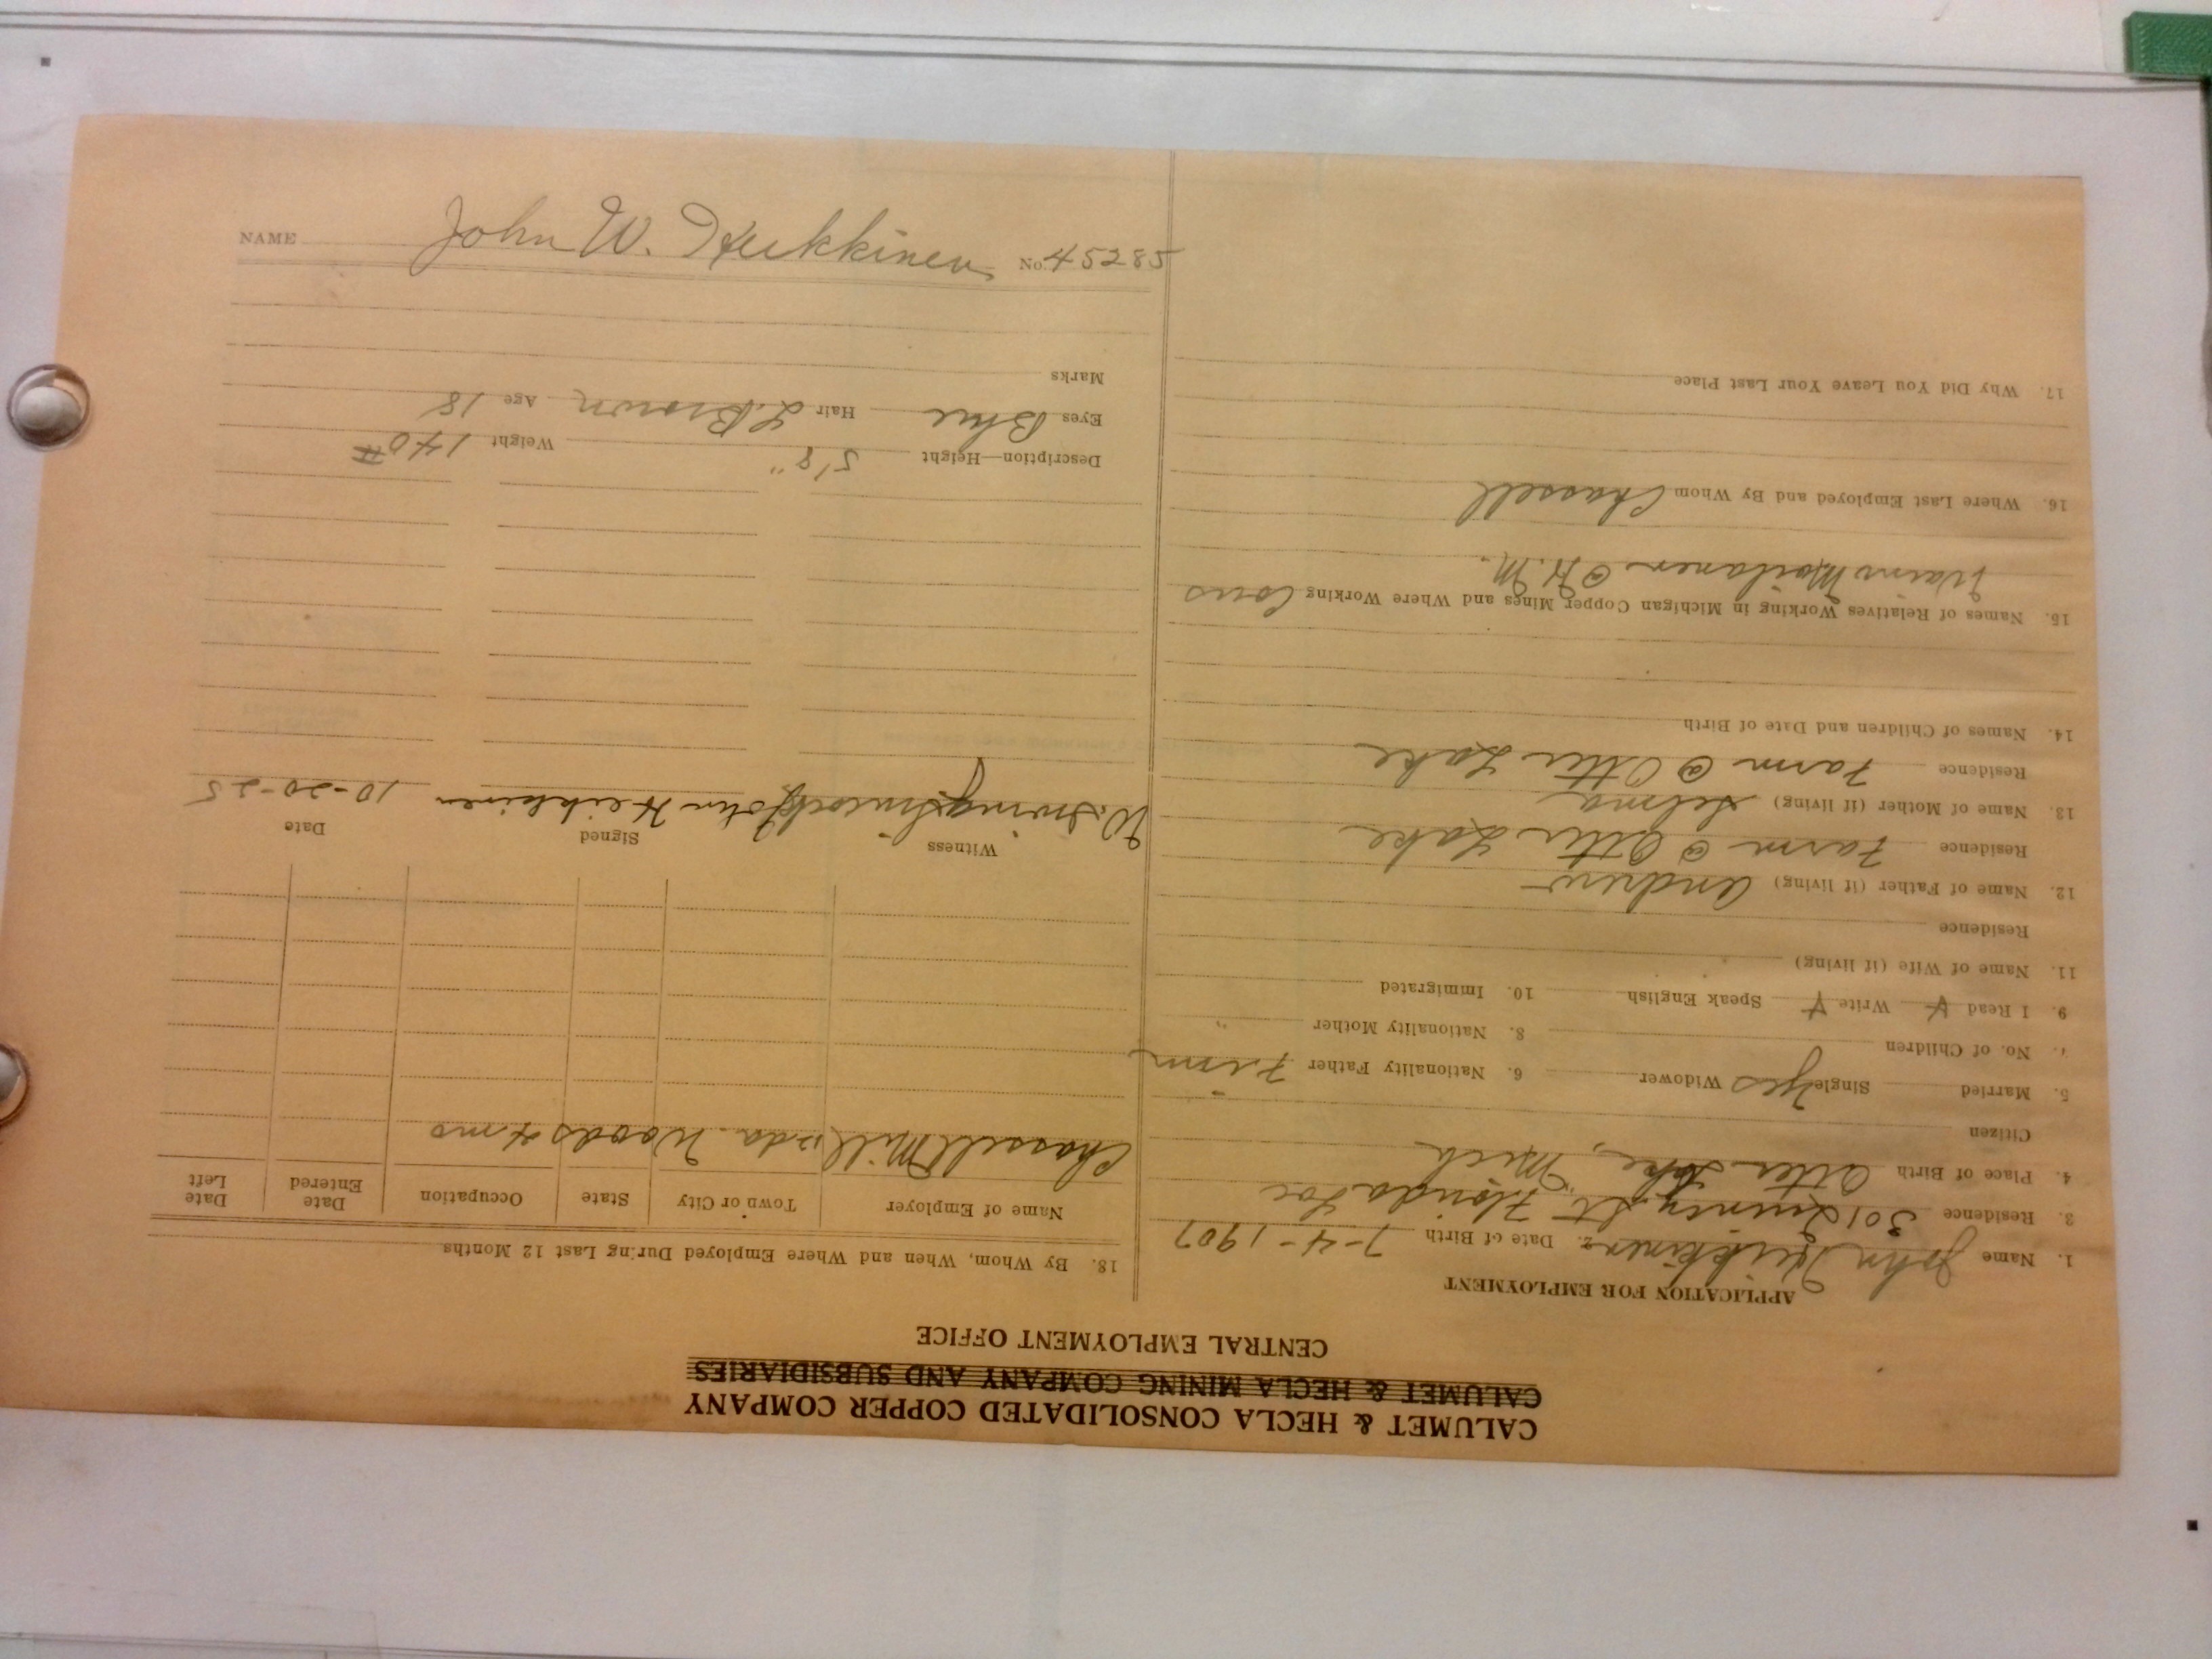 CALUMET & HECLA CONSOLIDATED COPPER COMPANY
CALUMET & HECLA MINING COMPANY AND SUBSIDIARIES
CENTRAL EMPLOYMENT OFFICE
APPLICATION FOR EMPLOYMENT
1. Name John Heikkinen 2. Date of Birth 7-4-1907
3. Residence 301 Quincy St Florida Loc
4. Place of Birth Otter Lake, Mich
Citizen
5. Married Single Yes Widower 6. Nationality Father Finn
7. No. of Children 8. Nationality Mother "
9. I Read Y Write Y Speak English 10. Immigrated
11. Name of Wife (if living)
Residence
12. Name of Father (if living) Andrew
Residence Farm @ Otter Lake
13. Name of Mother (if living) Selma
Residence Farm @ Otter Lake
14. Names of Children and Date of Birth
15. Names of Relatives Working in Michigan Copper Mines and Where Working Cous
Waino Moilanen @ H.M.
16. Where Last Employed and By Whom Chassell
17. Why Did You Leave Your Last Place
18. By Whom, When and Where Employed During Last 12 Months
Name of Employer Town or City State Occupation Date Entered Date Left
Chassell Mill Woods 4 mo
Witness Signed Date
W. Irving John Heikkinen 10-20-25
Description—Height 5'8" Weight 140 #
Eyes Blue Hair L. Brown Age 18
Marks
NAME John W. Heikkinen No. 45285